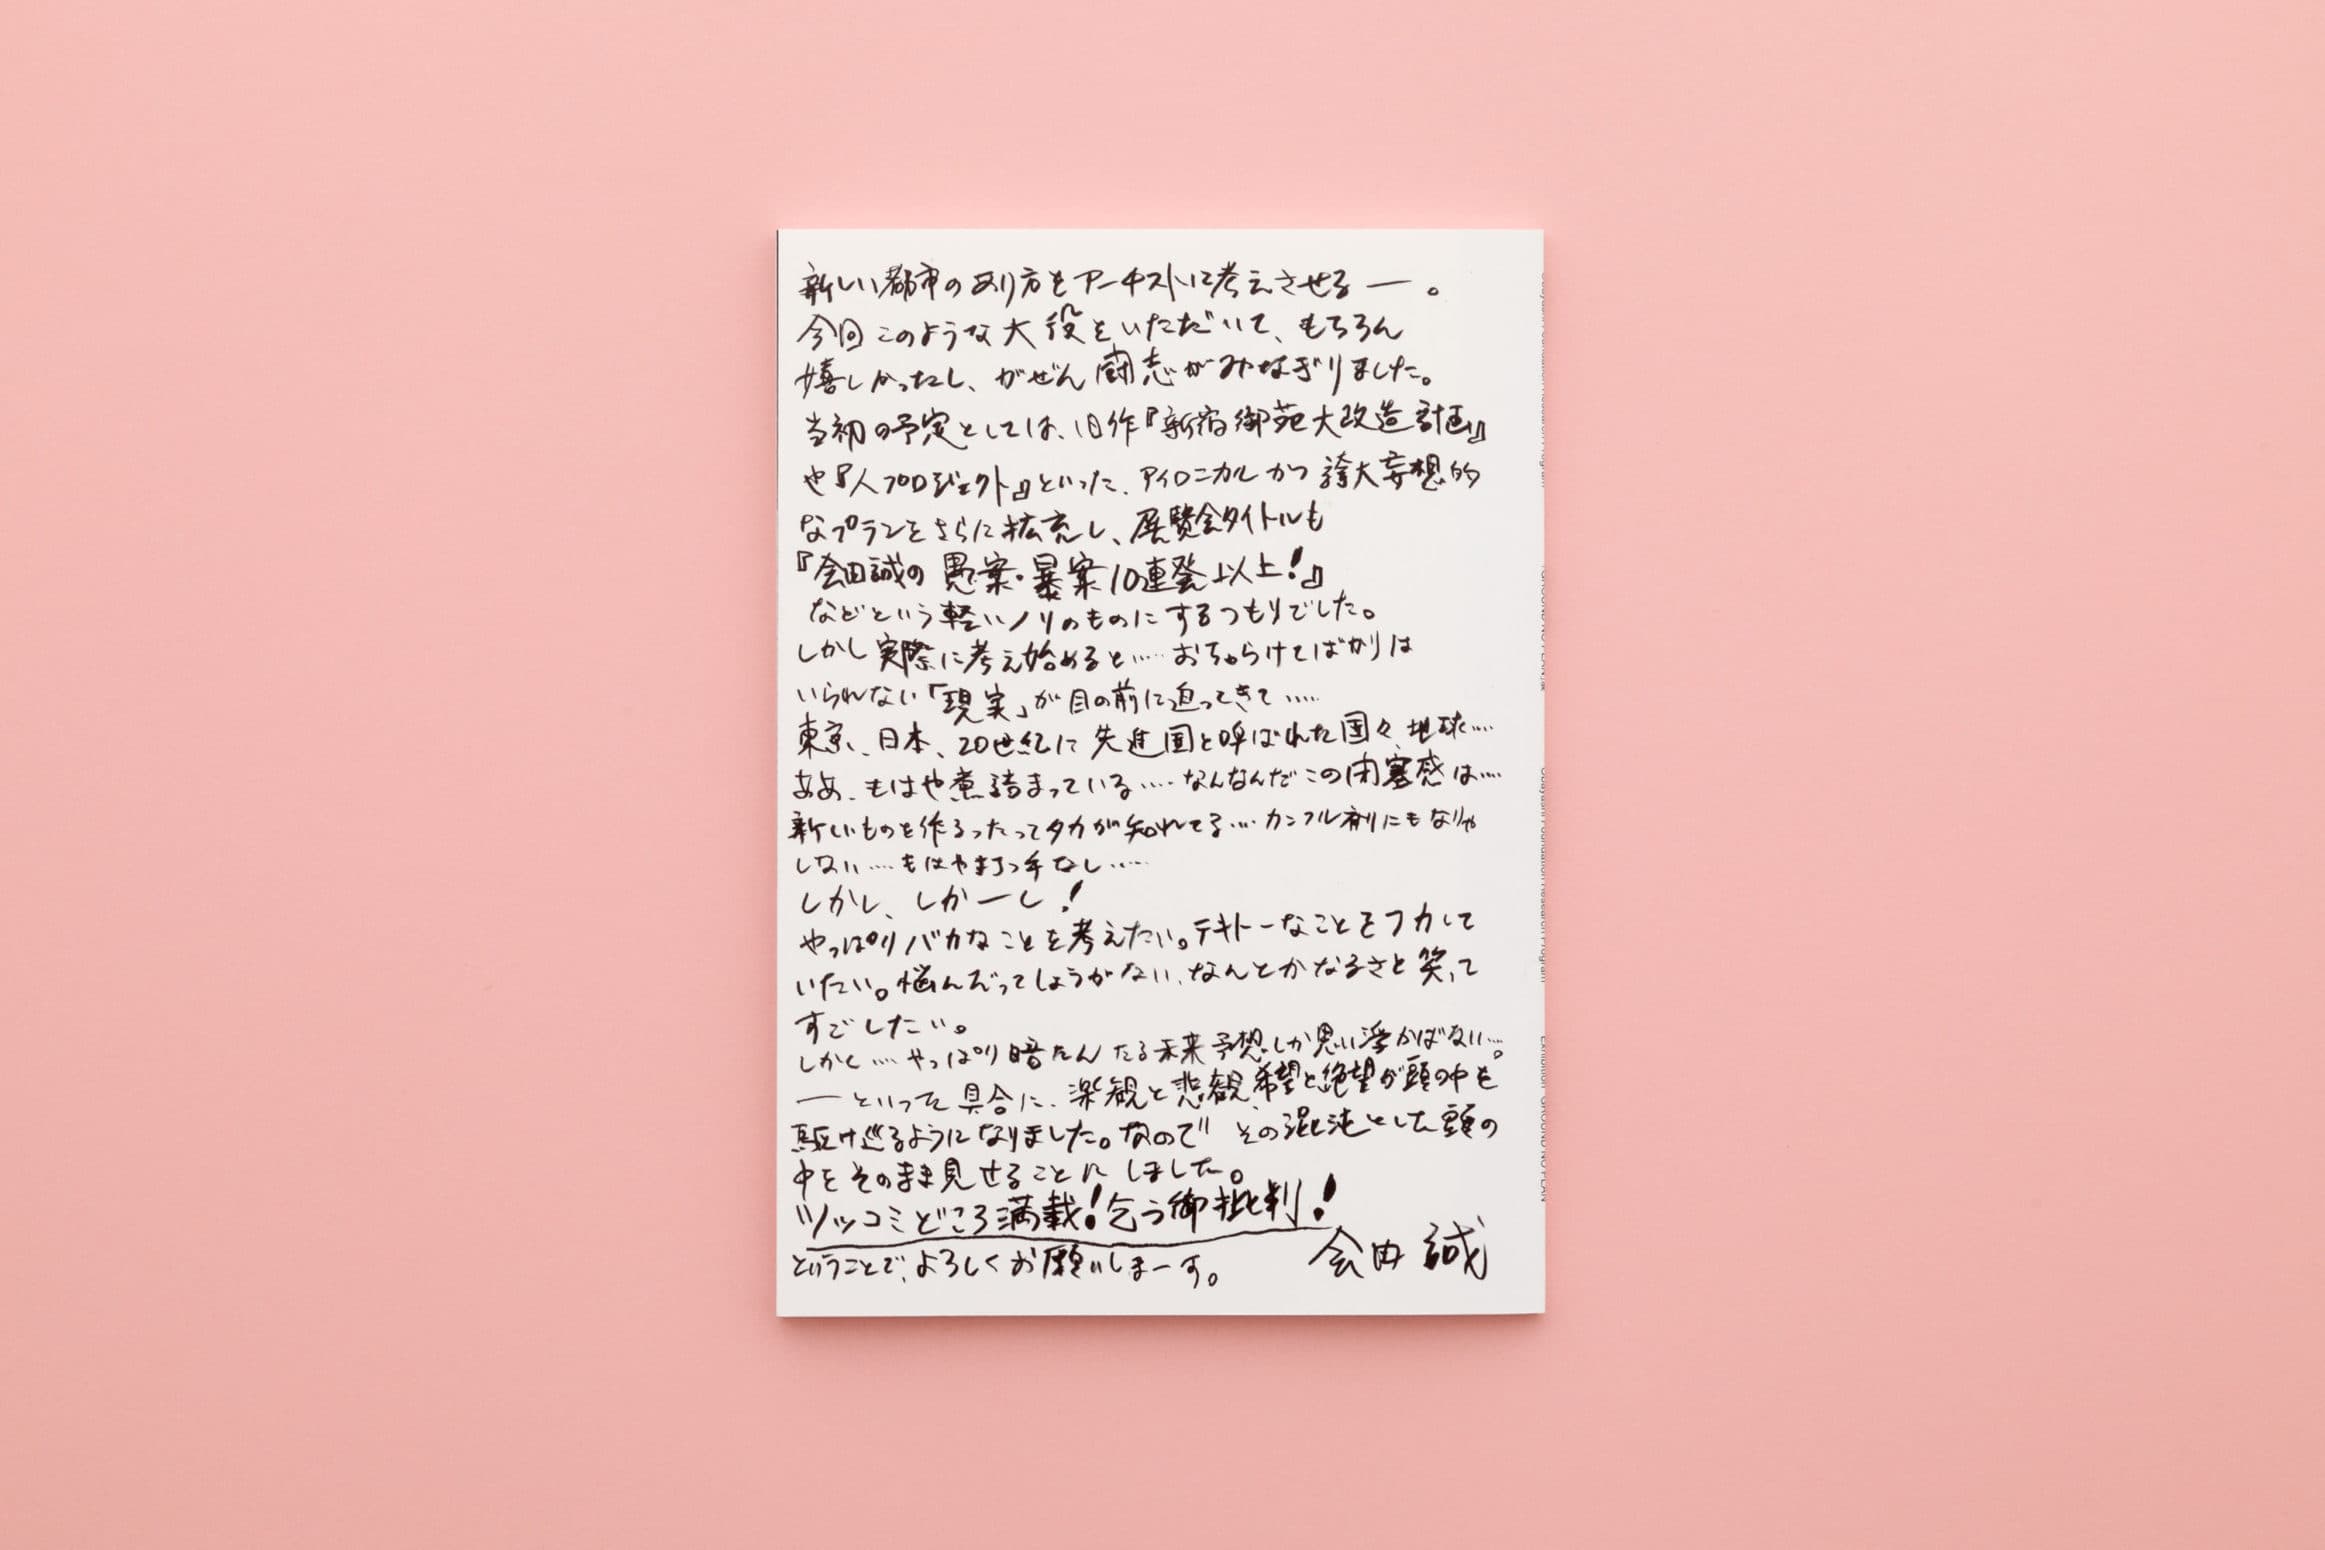 新しい都市のあり方をアーチストに考えさせる―。
今回このような大役をいただいて、もちろん
嬉しかったし、がぜん闘志がみなぎりました。
当初の予定としては、旧作『新宿御苑大改造計画』
や『人プロジェクト』といった、アイロニカルかつ誇大妄想的
なプランをさらに拡充し、展覧会タイトルも
『会田誠の愚案・暴案10連発以上!』
などという軽いノリのものにするつもりでした。
しかし実際に考え始めると……おちゃらけてばかりは
いられない「現実」が目の前に迫ってきて……
東京、日本、20世紀に先進国と呼ばれた国々、地球……
ああ、もはや煮詰まっている……なんなんだこの閉塞感は……
新しいものを作るったってタカが知れてる…カンフル剤にもなりゃ
しない……もはや打つ手なし……
しかし、しかーし!
やっぱりバカなことを考えたい。テキトーなことをフカして
いたい。悩んだってしょうがない、なんとかなるさと笑って
すごしたい。
しかし……やっぱり暗たんたる未来予想しか思い浮かばない…。
―といった具合に、楽観と悲観、希望と絶望が頭の中を
駆け巡るようになりました。なので その混沌とした頭の
中をそのまま見せることにしました。
ツッコミどころ満載!乞う御批判!
ということで、よろしくお願いしまーす。 会田誠